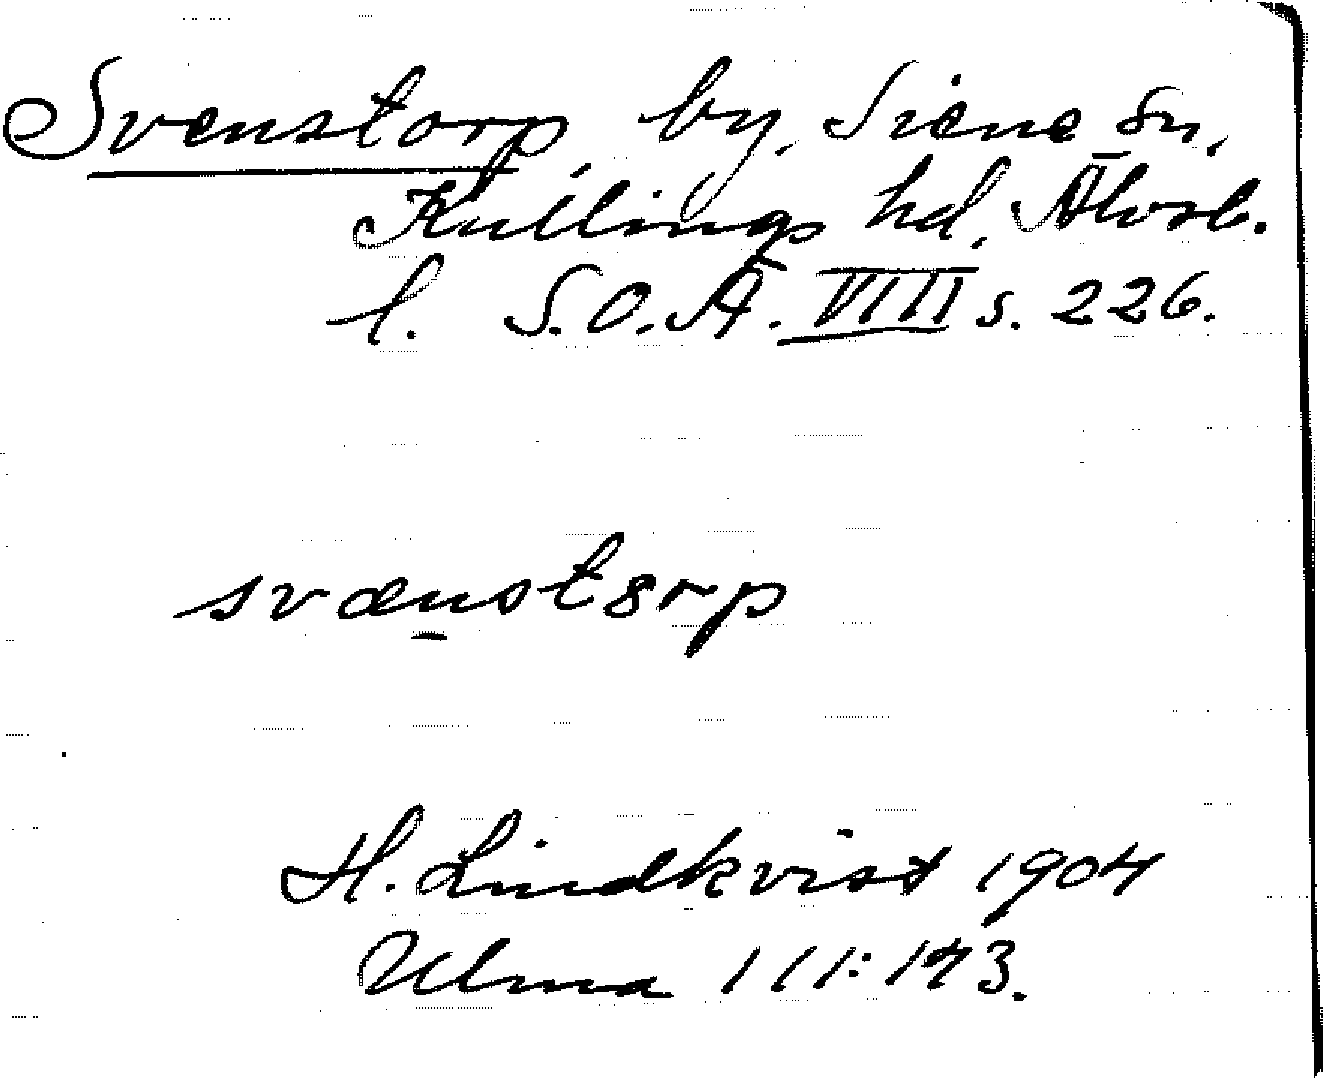 Svenstorp, by, Siene sn,
Kullings hd, Älvsb.
l. S.O.Ä. VIII s. 226.
svænstørp
H. Lindkvist 1904
Ulma 111:143.